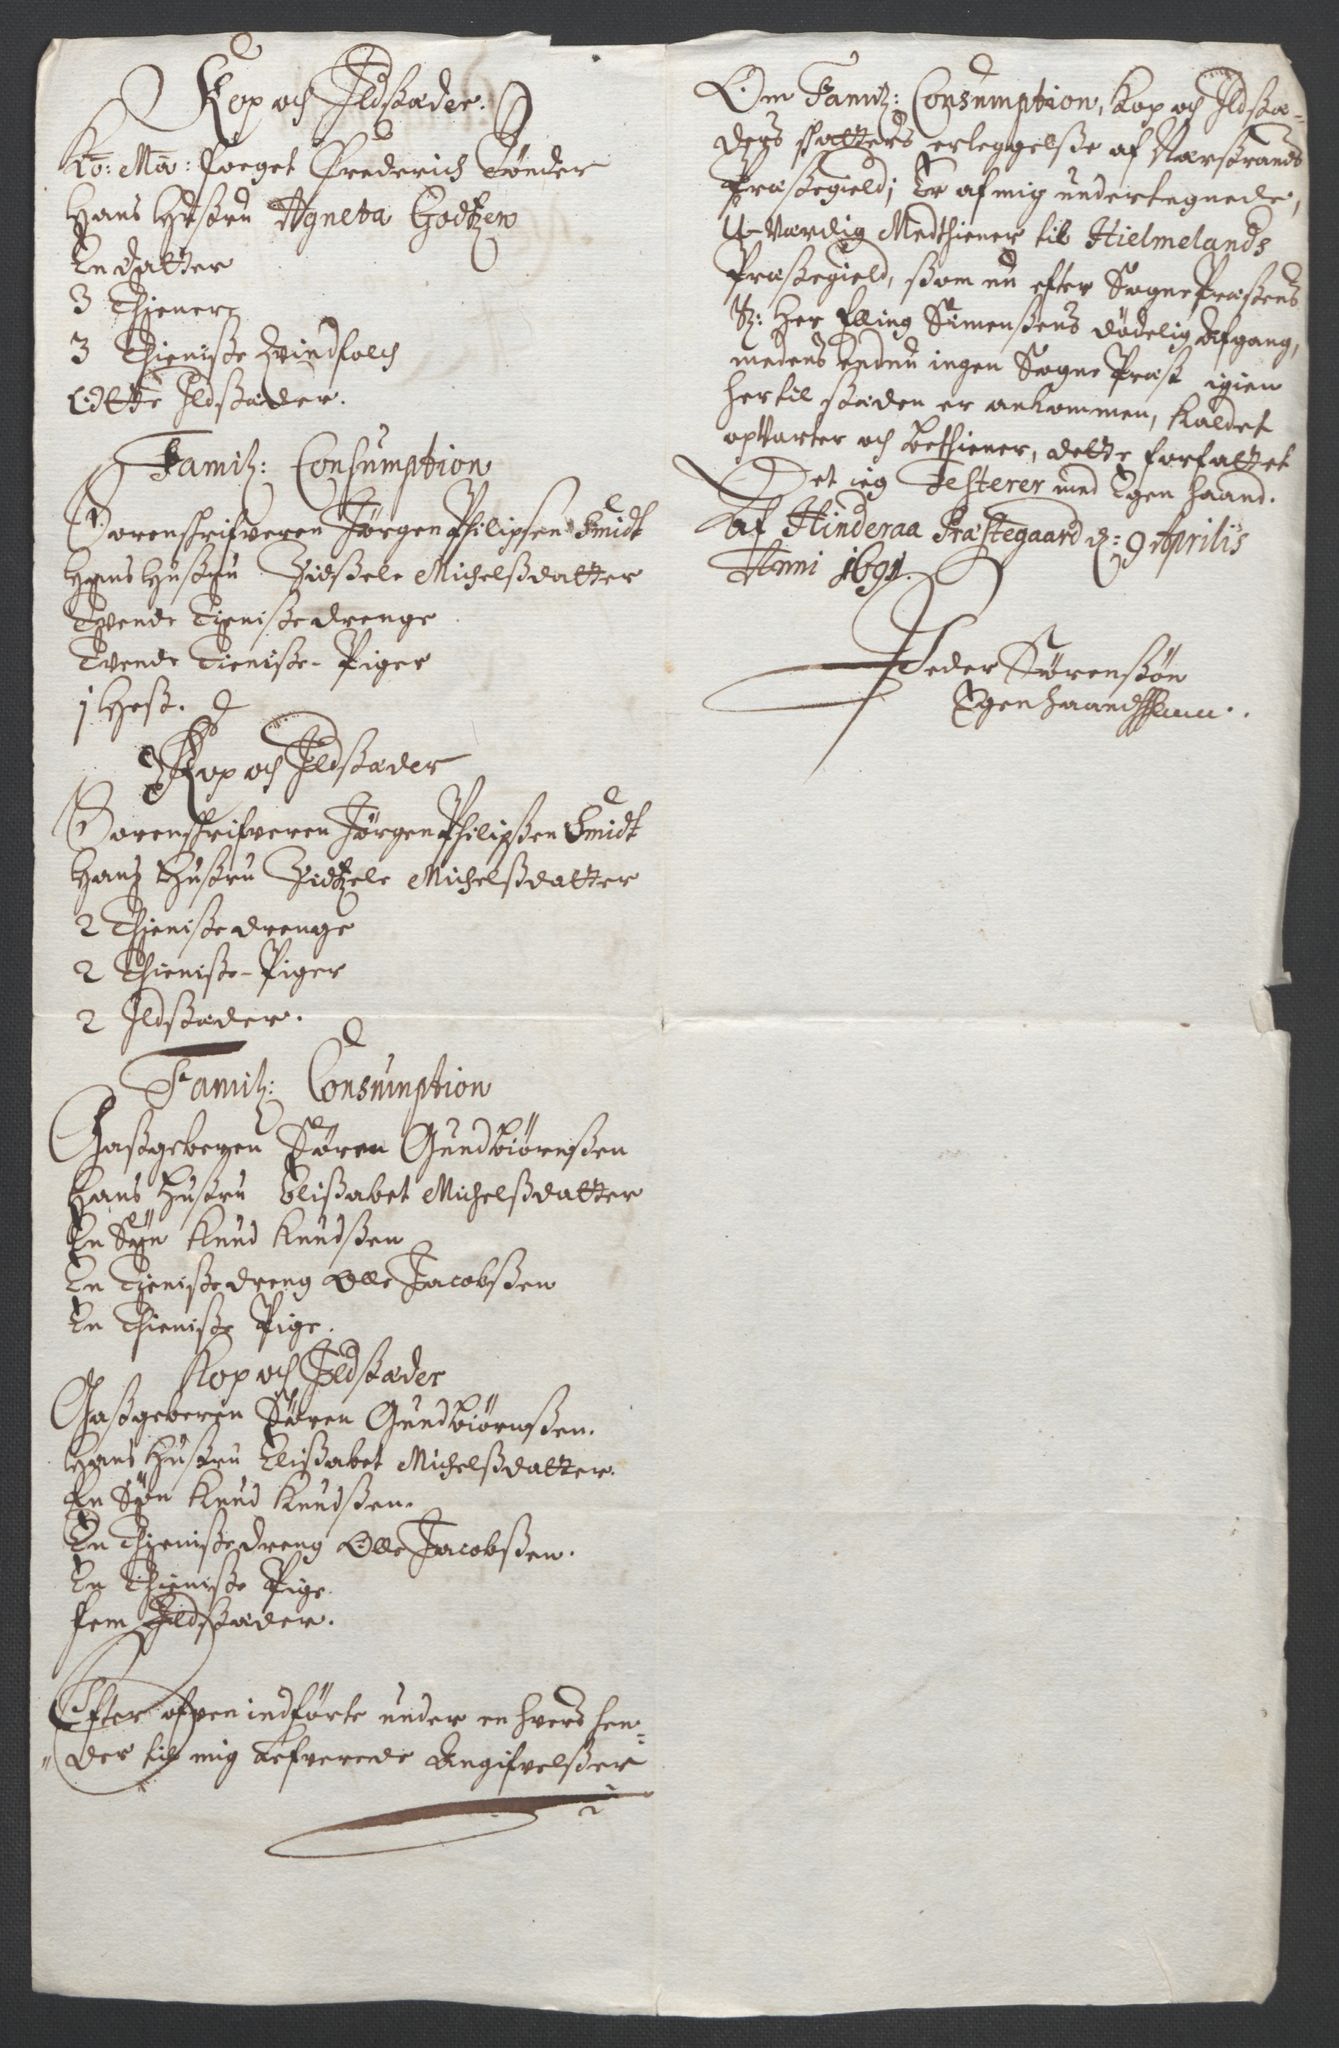 Kop och Ildstæder.
Ko: Ma: foeget Frederich Tønder
Hans Hustru Agneta Godtzen
En datter
3 Thienere
3 Thieniste Qvindfolch
Otte Ildstæder.
Famil: Consumption
Sorenschrifveren Jørgen Philipsen Smidt
Hans Hustru Zidsele Michelsdatter
Tvende Tieniste drenge
Tvende Tieniste-Piger
1 Hest.
Kop och Ildstæder
Sorenschrifveren Jørgen Philipsen Smidt
Hans Hustru Zidtzele Michelsdatter
2 Thieniste drenge
2 Thieniste-Piger
2 Ildstæder.
Famil: Consumption
Gastgeberen Søren Gundbiørnsen
Hans Hustru Elisabet Michelsdatter
En Søn Knud Knudsen
En Tieniste dreng Olle Jacobsen
En Thieniste Pige.
Kop och Ildstæder
Gastgeberen Søren Gundbiørnsen.
Hans Hustru Elisabet Michelsdatter.
En Søn Knud Knudsen.
En Thieniste dreng Olle Jacobsen.
En Thieniste Pige.
fem Ildstæder.
Efter ofven indførte under en hvers hen-
der til mig lefverede Angifvelser
Om Famil: Consumption, Kop och Ildstæ-
ders skatters erleggelse af Narstrands
Præstegield; Er af mig undertegnede,
U-værdig Medthiener til Hielmelands
Præstegield, som nu efter Sogne Præstens
Sl: Her Elling Simensens dødelig Afgang,
medens endnu ingen Sogne Præst igien
hertil staden er ankommen, Kaldet
opvarter och bethiener, dette forfattet
Det ieg Testerer med Egen haand.
Af Hinderaa Præstegaard d: 9 Aprilis
Anni 1691.
Peder Sørensøn
Egen haand